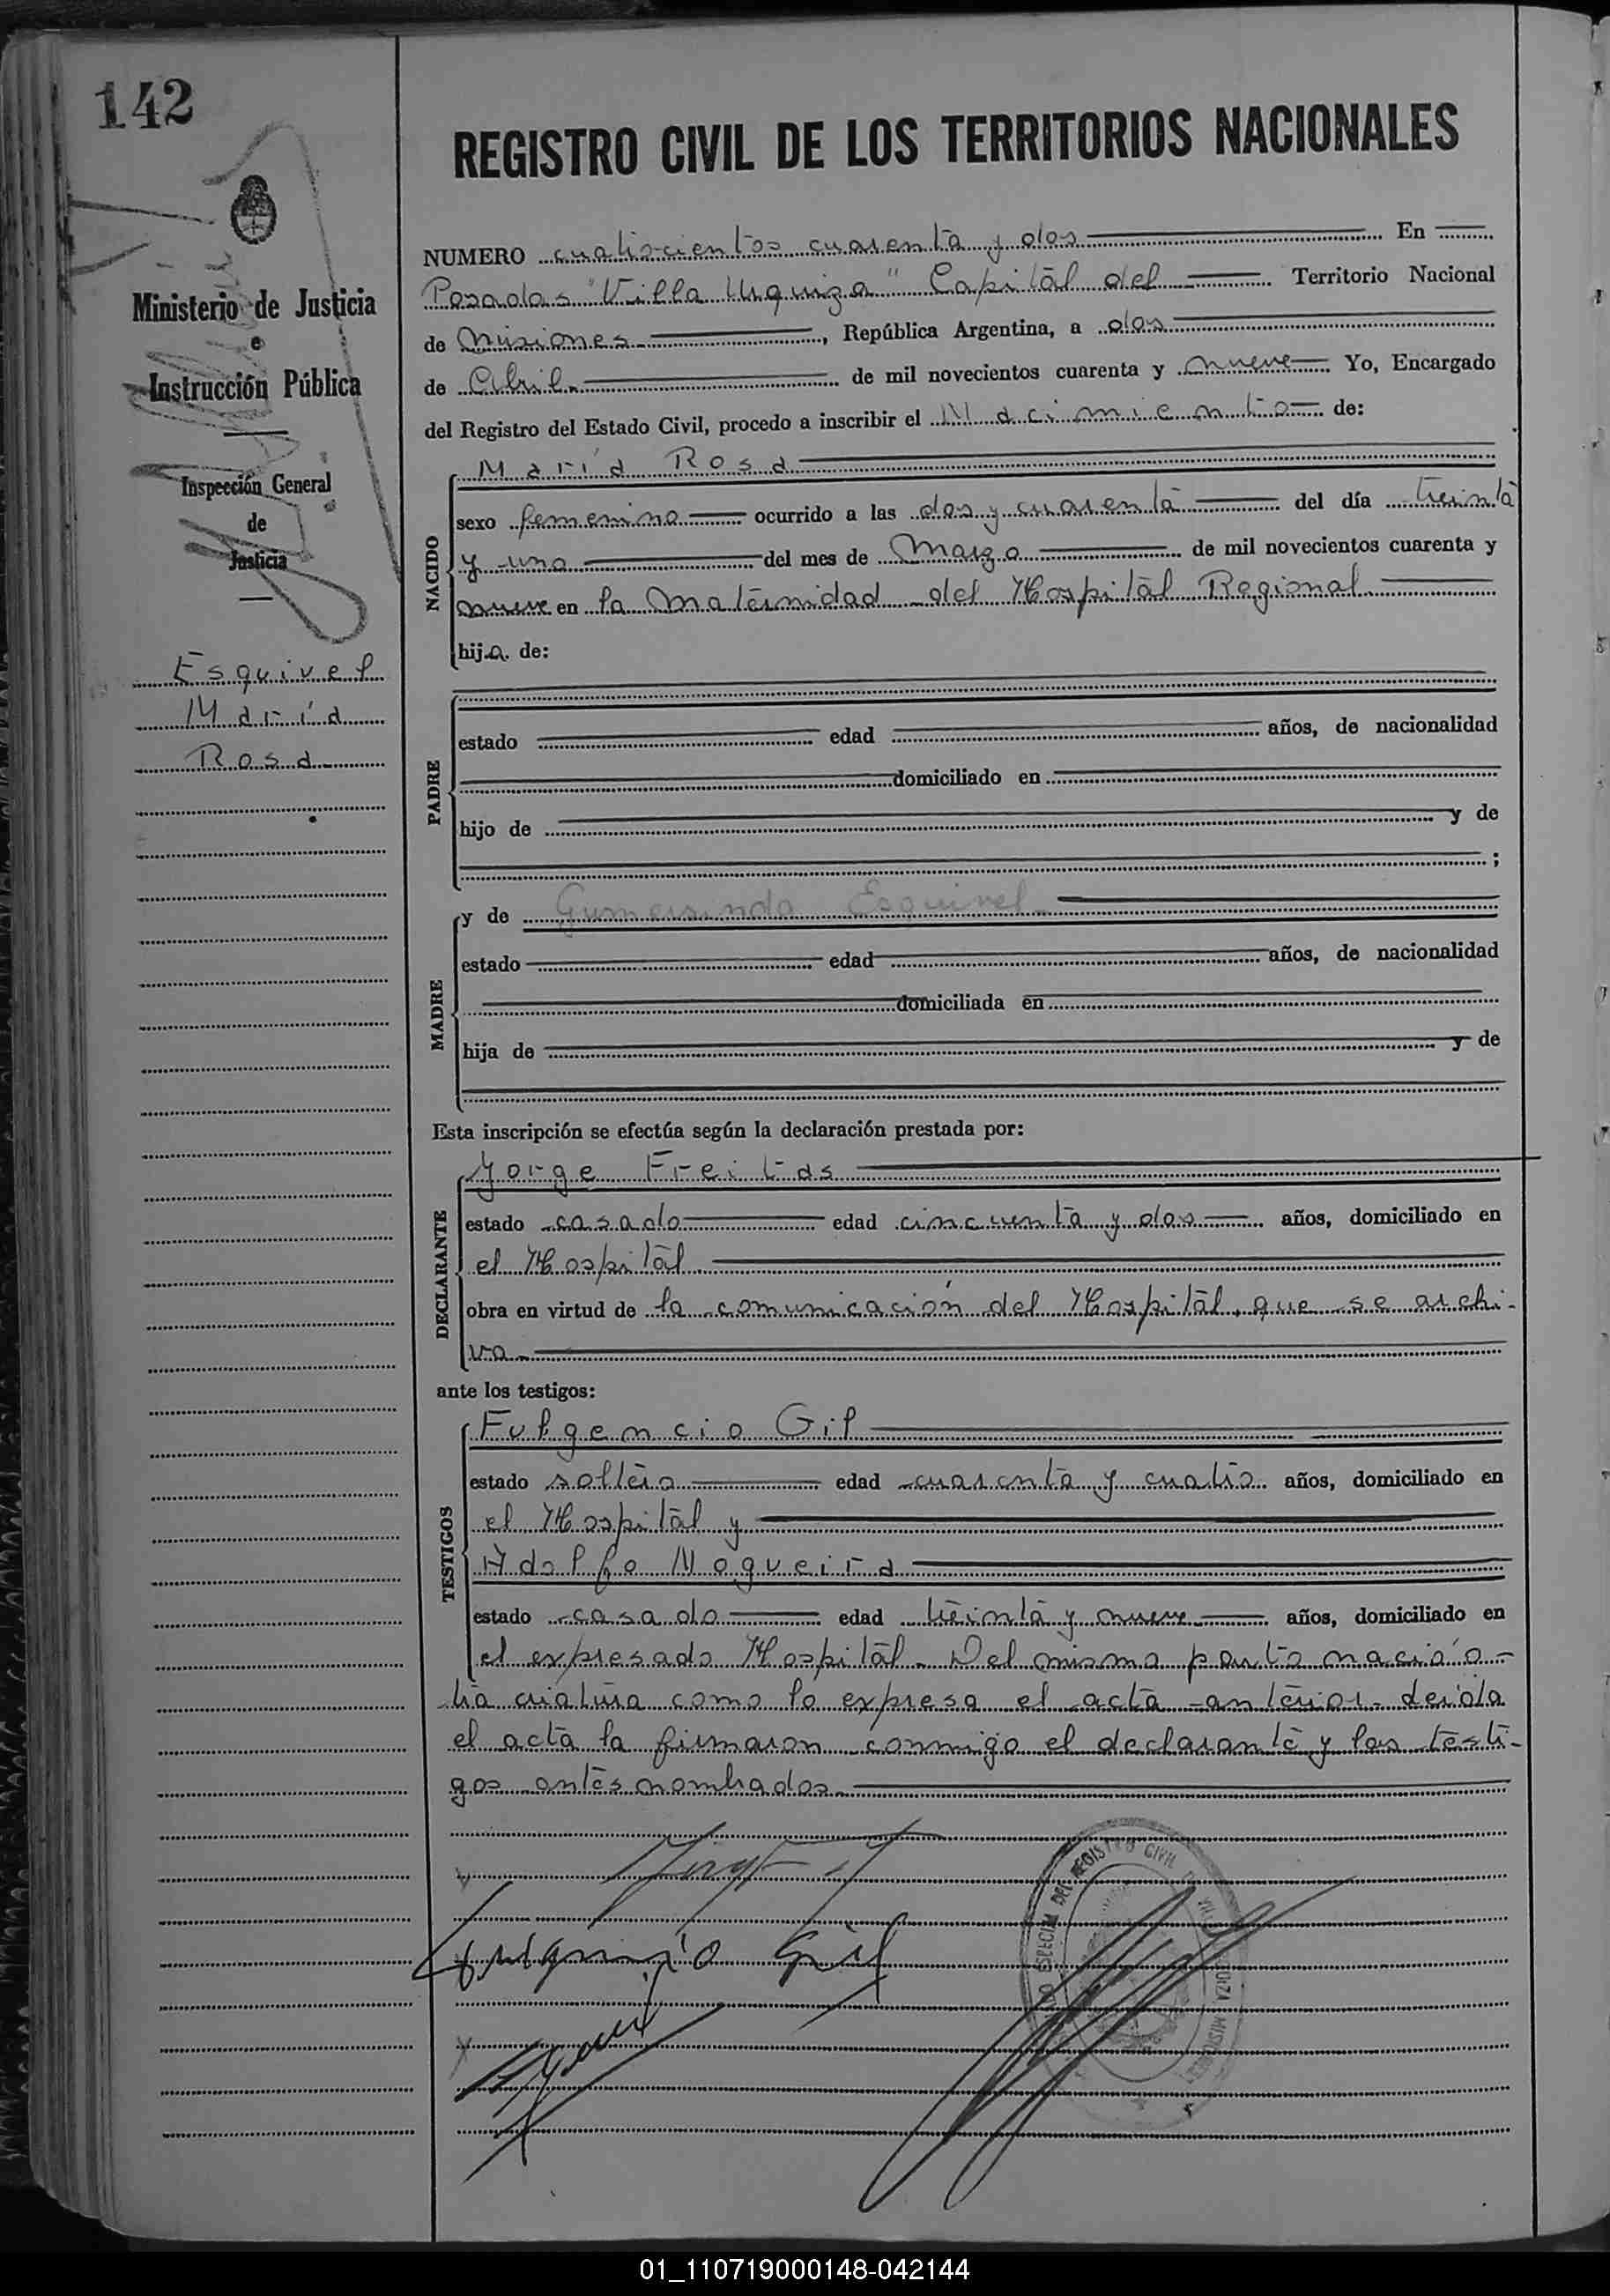 142
REGISTRO CIVIL DE LOS TERRITORIOS NACIONALES
Ministerio de Justicia
e
Instrucción Pública
Inspección General
de
Justicia
Esquivel
María
Rosa
NUMERO cuatrocientos cuarenta y dos En
Posadas "Villa Urquiza" Capital del Territorio Nacional
de Misiones, República Argentina, a dos
de Abril de mil novecientos cuarenta y nueve Yo, Encargado
del Registro del Estado Civil, procedo a inscribir el Nacimiento de:
NACIDO
María Rosa
sexo femenino ocurrido a las dos y cuarenta del día treinta
y uno del mes de Marzo de mil novecientos cuarenta y
nueve en la Maternidad del Hospital Regional
hija de:
PADRE
estado edad años, de nacionalidad
domiciliado en
hijo de y de
;
MADRE
y de Gumersinda Esquivel
estado edad años, de nacionalidad
domiciliada en
hija de y de
Esta inscripción se efectúa según la declaración prestada por:
DECLARANTE
Jorge Freitas
estado casado edad cincuenta y dos años, domiciliado en
el Hospital
obra en virtud de la comunicación del Hospital, que se archi-
va.
ante los testigos:
TESTIGOS
Fulgencio Gil
estado soltero edad cuarenta y cuatro años, domiciliado en
el Hospital y
Adolfo Nogueira
estado casado edad treinta y nueve años, domiciliado en
el expresado Hospital. Del mismo parto nació o-
tra criatura como lo expresa el acta anterior. Leída
el acta la firmaron conmigo el declarante y los testi-
gos antes nombrados.
Fulgencio Gil
ESPECIAL DEL REGISTRO CIVIL
01_110719000148-042144